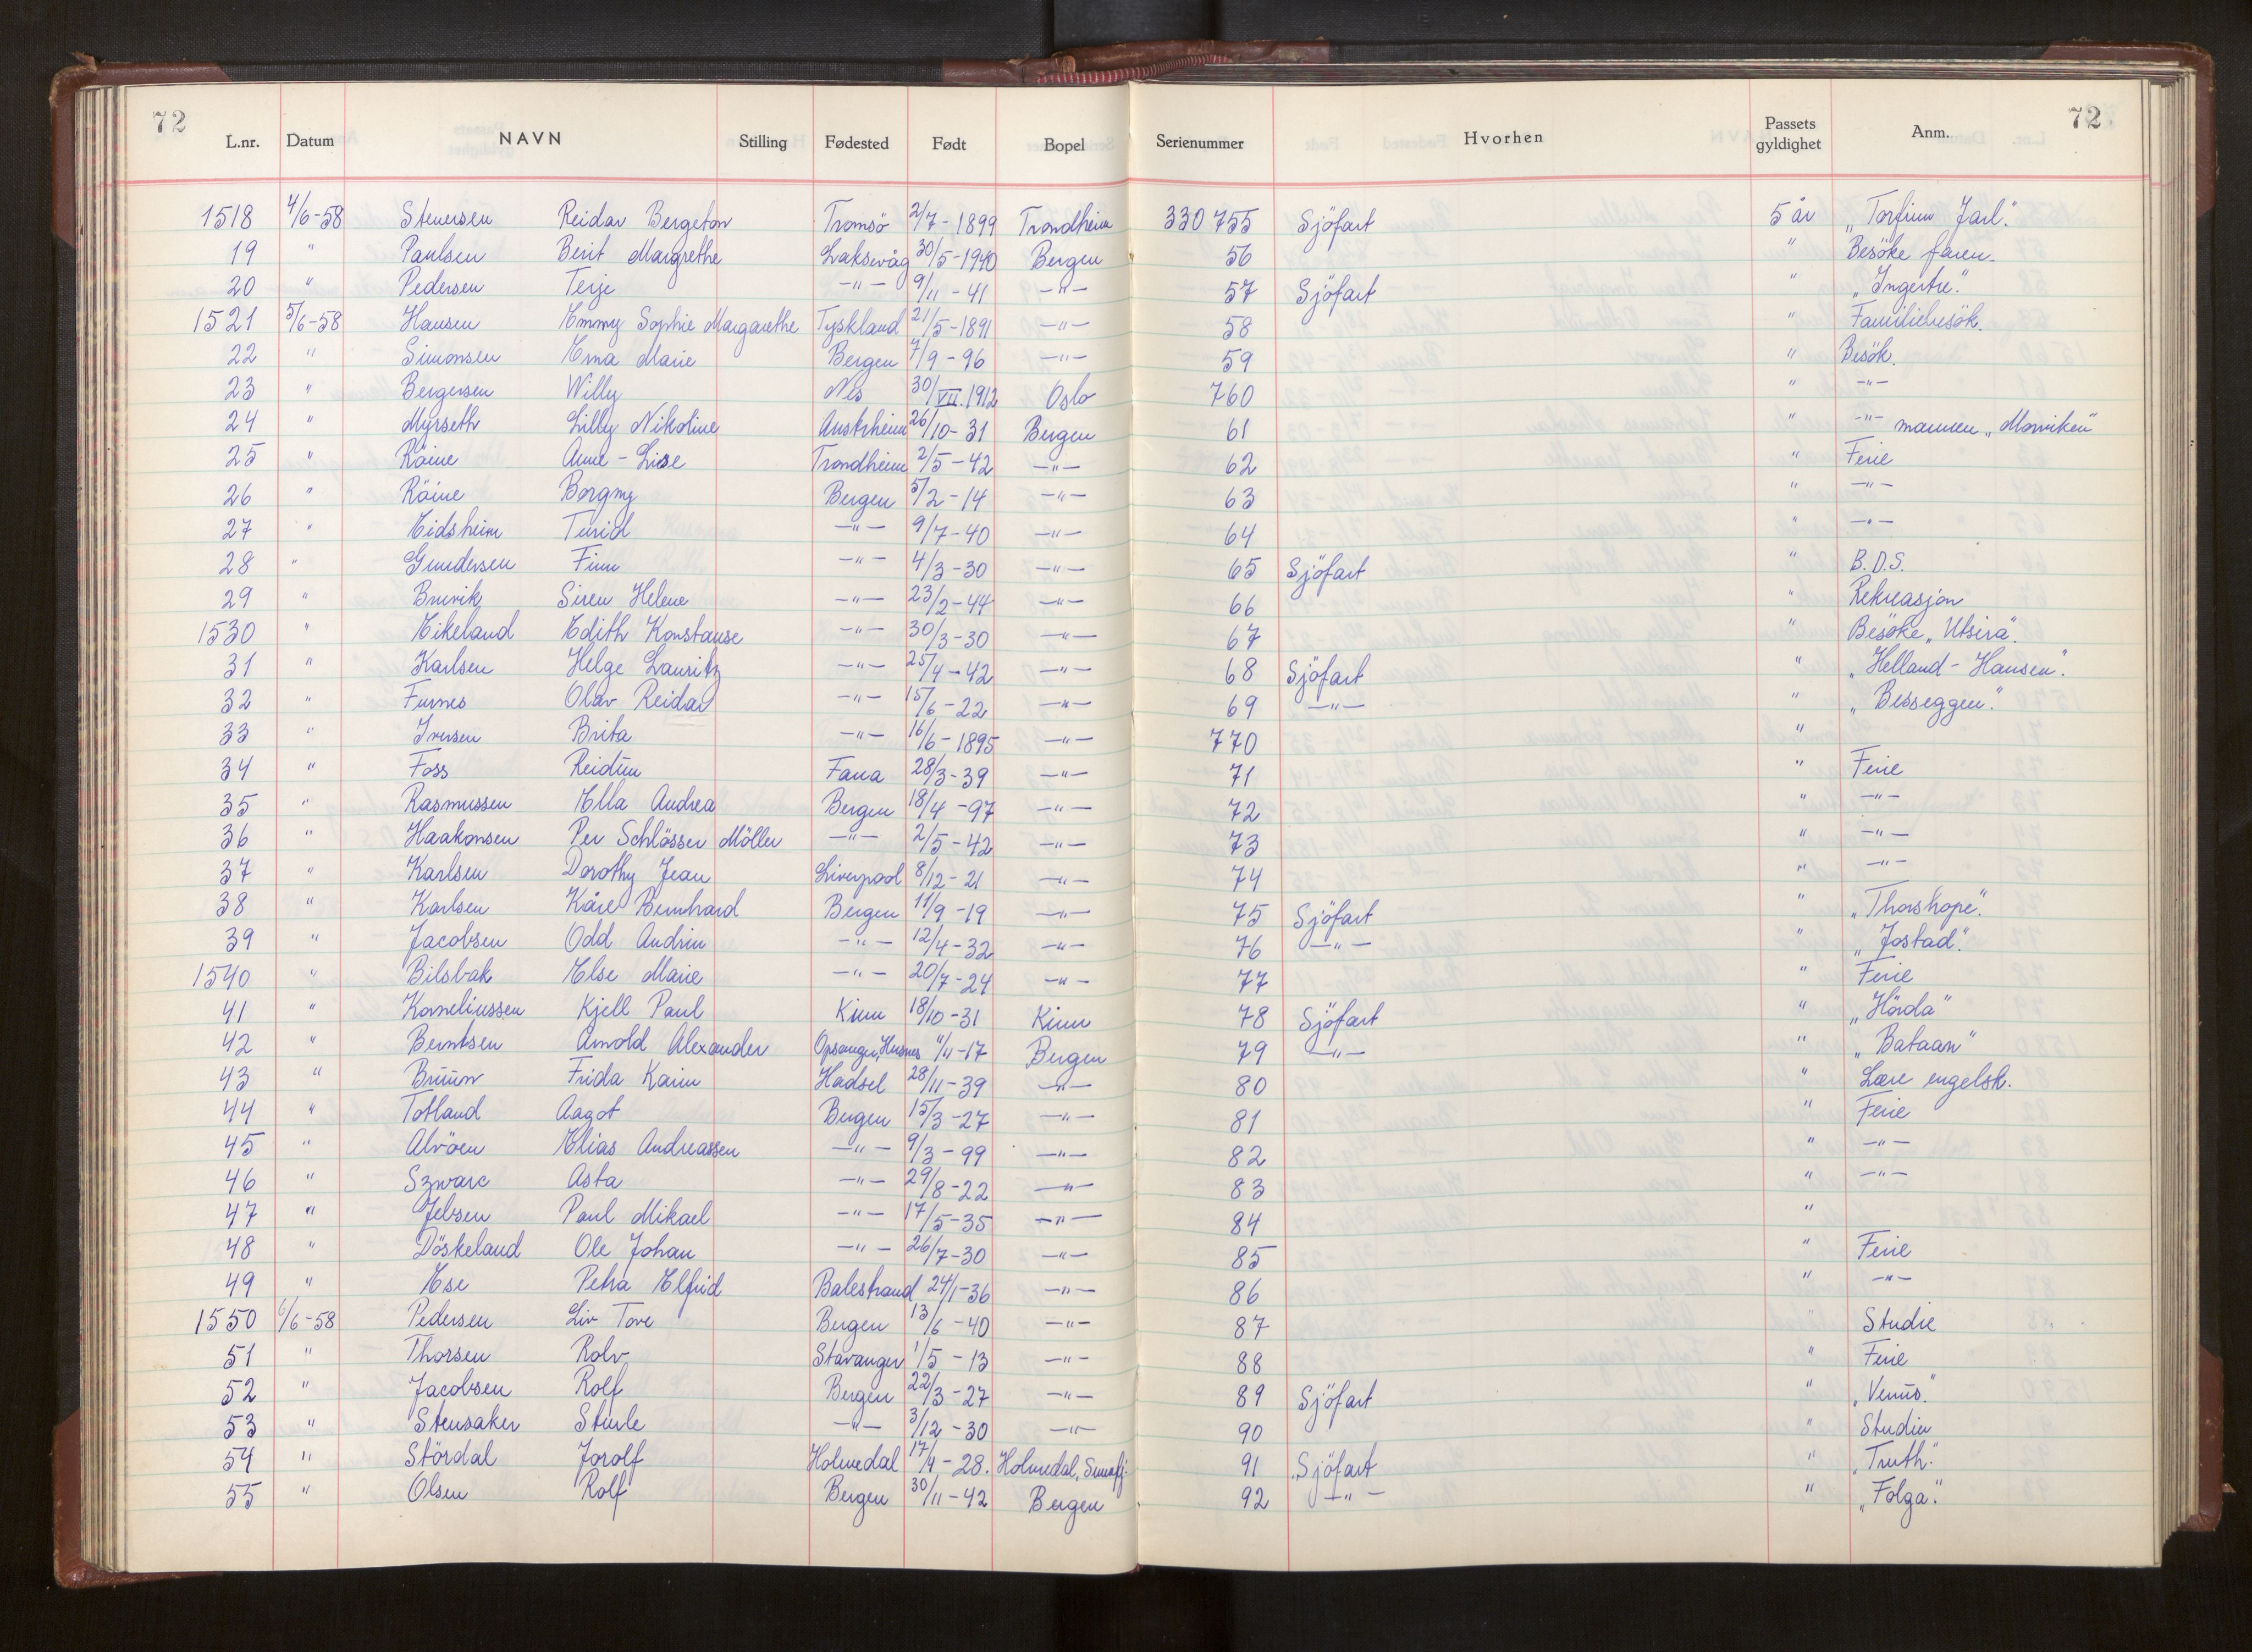 72 72
L.nr. Datum NAVN Stilling Fødested Født Bopel Serienummer Hvorhen Passets gyldighet Anm.
1518 4/6-58 Stenersen Reidar Bergeton Tromsö 2/7-1899 Trondheim 330 755 Sjöfart 5 år „Torfinn Jarl."
19 " Paulsen Berit Margrethe Laksevåg 30/5-1940 Bergen 56 " Besöke faren.
20 " Pedersen Terje -"- 9/11-41 -"- 57 Sjöfart " „Ingertre."
1521 5/6-58 Hansen Emmy Sophie Margarethe Tyskland 21/5-1891 -"- 58 " Familiebesök.
22 " Simonsen Erna Marie Bergen 7/9-96 -"- 59 " Besök.
23 " Bergersen Willy Nes 30/VII.1912 Oslo 760 " -"-
24 " Myrseth Lilly Nikoline Austrheim 26/10-31 Bergen 61 " -"- mannen „Morviken"
25 " Röine Anne-Lise Trondheim 2/5-42 -"- 62 " Ferie
26 " Röine Borgny Bergen 5/2-14 -"- 63 " -"-
27 " Eidsheim Turid -"- 9/7-40 -"- 64 " -"-
28 " Gundersen Finn -"- 4/3-30 -"- 65 Sjöfart " B.D.S.
29 " Bruvik Siren Helene -"- 23/2-44 -"- 66 " Rekreasjon
1530 " Eikeland Edith Konstanse -"- 30/3-30 -"- 67 " Besöke „Utsira".
31 " Karlsen Helge Lauritz -"- 25/4-42 -"- 68 Sjöfart " „Helland-Hansen".
32 " Furnes Olav Reidar -"- 15/6-22 -"- 69 -"- " „Besseggen."
33 " Iversen Brita -"- 16/6-1895 -"- 770 "
34 " Foss Reidun Fana 28/3-39 -"- 71 " Ferie
35 " Rasmussen Ella Andrea Bergen 18/4-97 -"- 72 " -"-
36 " Haakonsen Per Schlösser Möller -"- 2/5-42 -"- 73 " -"-
37 " Karlsen Dorothy Jean Liverpool 8/12-21 -"- 74 " -"-
38 " Karlsen Kåre Bernhard Bergen 11/9-19 -"- 75 Sjöfart " „Thorshope."
39 " Jacobsen Odd Andrin -"- 12/4-32 -"- 76 -"- " „Jostad."
1540 " Bilsbak Else Marie -"- 20/7-24 -"- 77 " Ferie
41 " Korneliussen Kjell Paul Kinn 18/10-31 Kinn 78 Sjöfart " „Hörda"
42 " Berntsen Arnold Alexander Opsanger, Husnes 11/11-17 Bergen 79 -"- " „Bataan"
43 " Bruun Frida Karin Hadsel 28/11-39 -"- 80 " Lære engelsk.
44 " Totland Aagot Bergen 15/3-27 -"- 81 " Ferie
45 " Alvöen Elias Andreassen -"- 9/3-99 -"- 82 " -"-
46 " Szwarc Asta -"- 29/8-22 -"- 83 " -"-
47 " Jebsen Paul Mikael -"- 17/5-35 -"- 84 "
48 " Döskeland Ole Johan -"- 26/7-30 -"- 85 " Ferie
49 " Ese Petra Elfrid Balestrand 24/1-36 -"- 86 " -"-
1550 6/6-58 Pedersen Liv Tove Bergen 13/6-40 -"- 87 " Studie
51 " Thorsen Rolv Stavanger 1/5-13 -"- 88 " Ferie
52 " Jacobsen Rolf Bergen 22/3-27 -"- 89 Sjöfart " „Venus."
53 " Stensaker Sturle -"- 3/12-30 -"- 90 " Studier
54 " Stördal Jorolf Holmedal 17/4-28. Holmedal, Sunnfj. 91 Sjöfart " „Truth."
55 " Olsen Rolf Bergen 30/11-42 Bergen 92 -"- " „Folga."